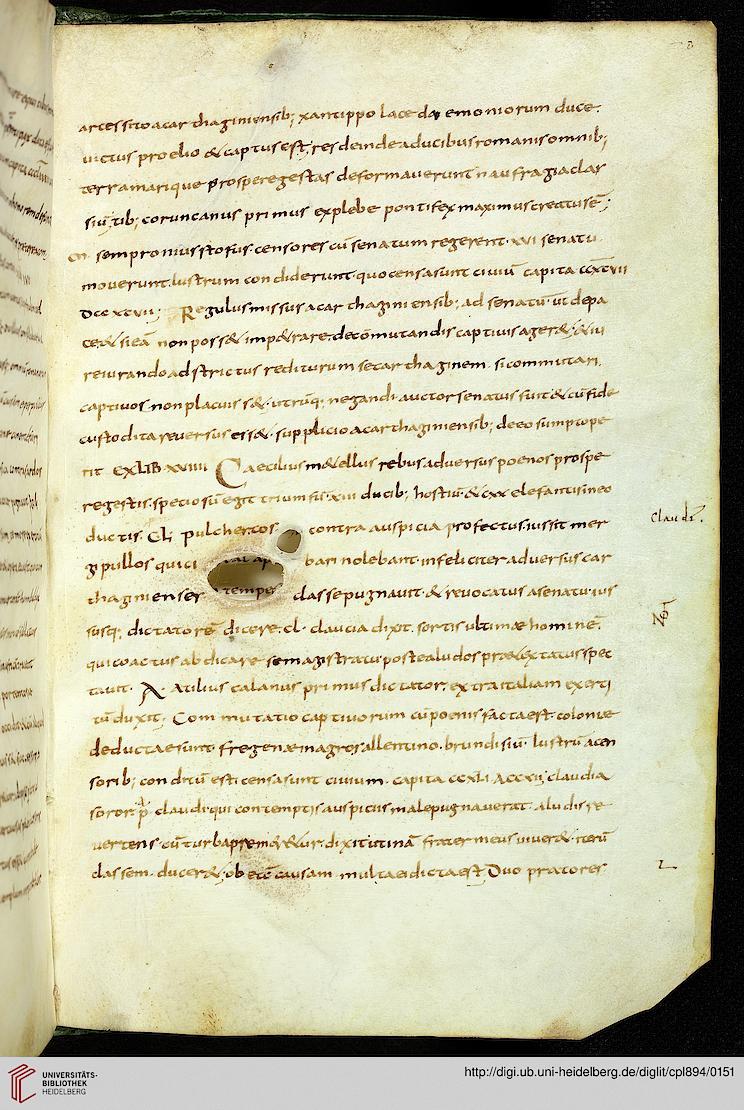 arcessitoacarthaginiensib; xantippo lacedaemoniorum duce.
uictus proelio & captusest; res deinde aducibusromanisomnib;
terramarique prosperegestas deformauerunt naufragiaclas
siu; tib; coruncanus primus explebe pontifexmaximuscreatusē;
cn semproniussfofus censores cū senatum regerent. xvi senatu
mouerunt. lustrum condiderunt. quocensasunt ciuiū capita ccxcvii
Dccxcvii; Regulusmissus acarthaginiensib; ad senatū ut depa
ce& sieā non poss& imp&rare. decōmutandis captiuis ager&; & iu
reiurandoadstrictus rediturum secarthaginem. sicommutari
captiuos nonplacuiss&. utrūq; negandi auctor senatus fuit & cū fide
custodita reuersus ess&. supplicio acarthaginiensib; deeosumptope
riit EXLIB XVIIII Caecilius m&ellus rebusaduersus poenos prospe
regestis. speciosū egit triumfū. xiii ducib; hostiū & cxx elefantisineo
ductis. CL; pulcher. cos contra auspicia profectus. iussit mer
gi pullos qui ci bari nolebant. infeliciter aduersus car
thaginienses tempe classe pugnauit & reuocatus asenatu. ius
susq; dictatorē dicere. cl. claucia dixit. sortis ultimæ hominē.
qui coactus abdicare semagistratu. postea ludos prætextatus spec
tauit. A. Atilius calanus primus dictator. extraitaliam exerci
tū duxit; Commutatio captiuorum cū poenis factaest. coloniæ
deductaesunt fregenæ inagrosallentino. brundisiū. lustrū acen
sorib; conditū est. censasunt ciuium. capita ccxli accxii; claudia
soror p̄ claudi. qui contemptis auspiciis malepugnauerat. aludis re
uertens cū turba prem&r&ur. dixit utinā frater meus uiuer& iterū
classem. ducer&; ob eā causam multa eidictaest Duo pratores
Claudi.
UNIVERSITÄTS-
BIBLIOTHEK
HEIDELBERG
http://digi.ub.uni-heidelberg.de/diglit/cpl894/0151